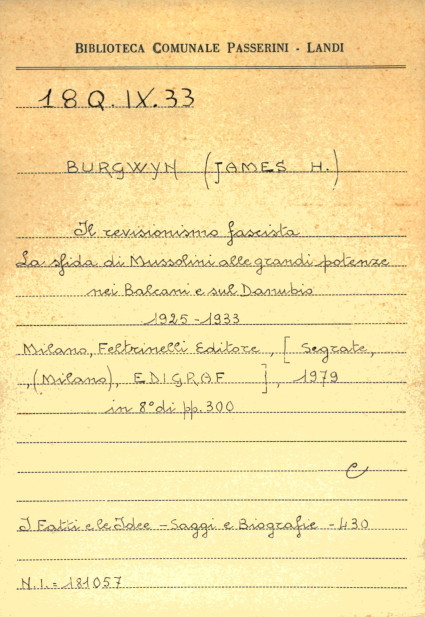 BIBLIOTECA COMUNALE PASSERINI - LANDI
18 Q. IX. 33
BURGWYN (JAMES H.)
Il revisionismo fascista
La sfida di Mussolini alle grandi potenze
nei Balcani e sul Danubio
1925-1933
Milano, Feltrinelli Editore, [ Segrate,
,(Milano), EDIGRAF ], 1979
in 8° di pp. 300
e
I Fatti e le Idee - Saggi e Biografie - 430
N.I. = 181057